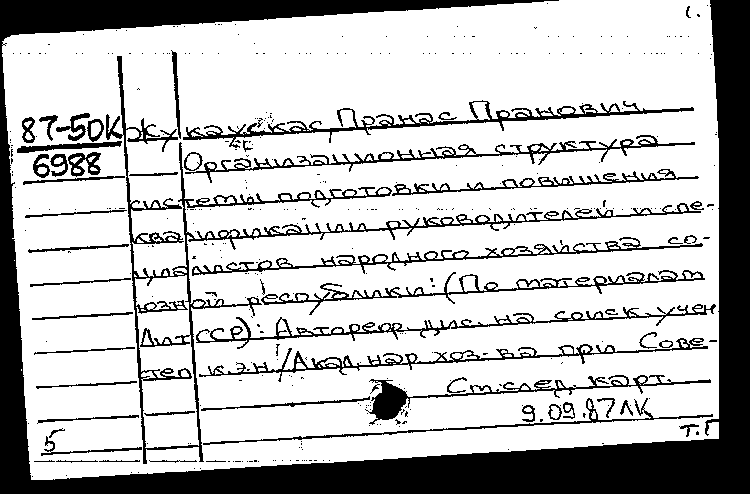 1.
87-50К Жукаускас, Пранас Пранович.
6988 Организационная структура
системы подготовки и повышения
квалификации руководителей и спе-
циалистов народного хозяйства со-
юзной республики: (По материалам
ЛитССР): Автореф. дис. на соиск. учен.
степ. к.э.н. /Акад. нар. хоз-ва при Сове-
См. след. карт.
9.09.87 ЛК
5
Т.Г